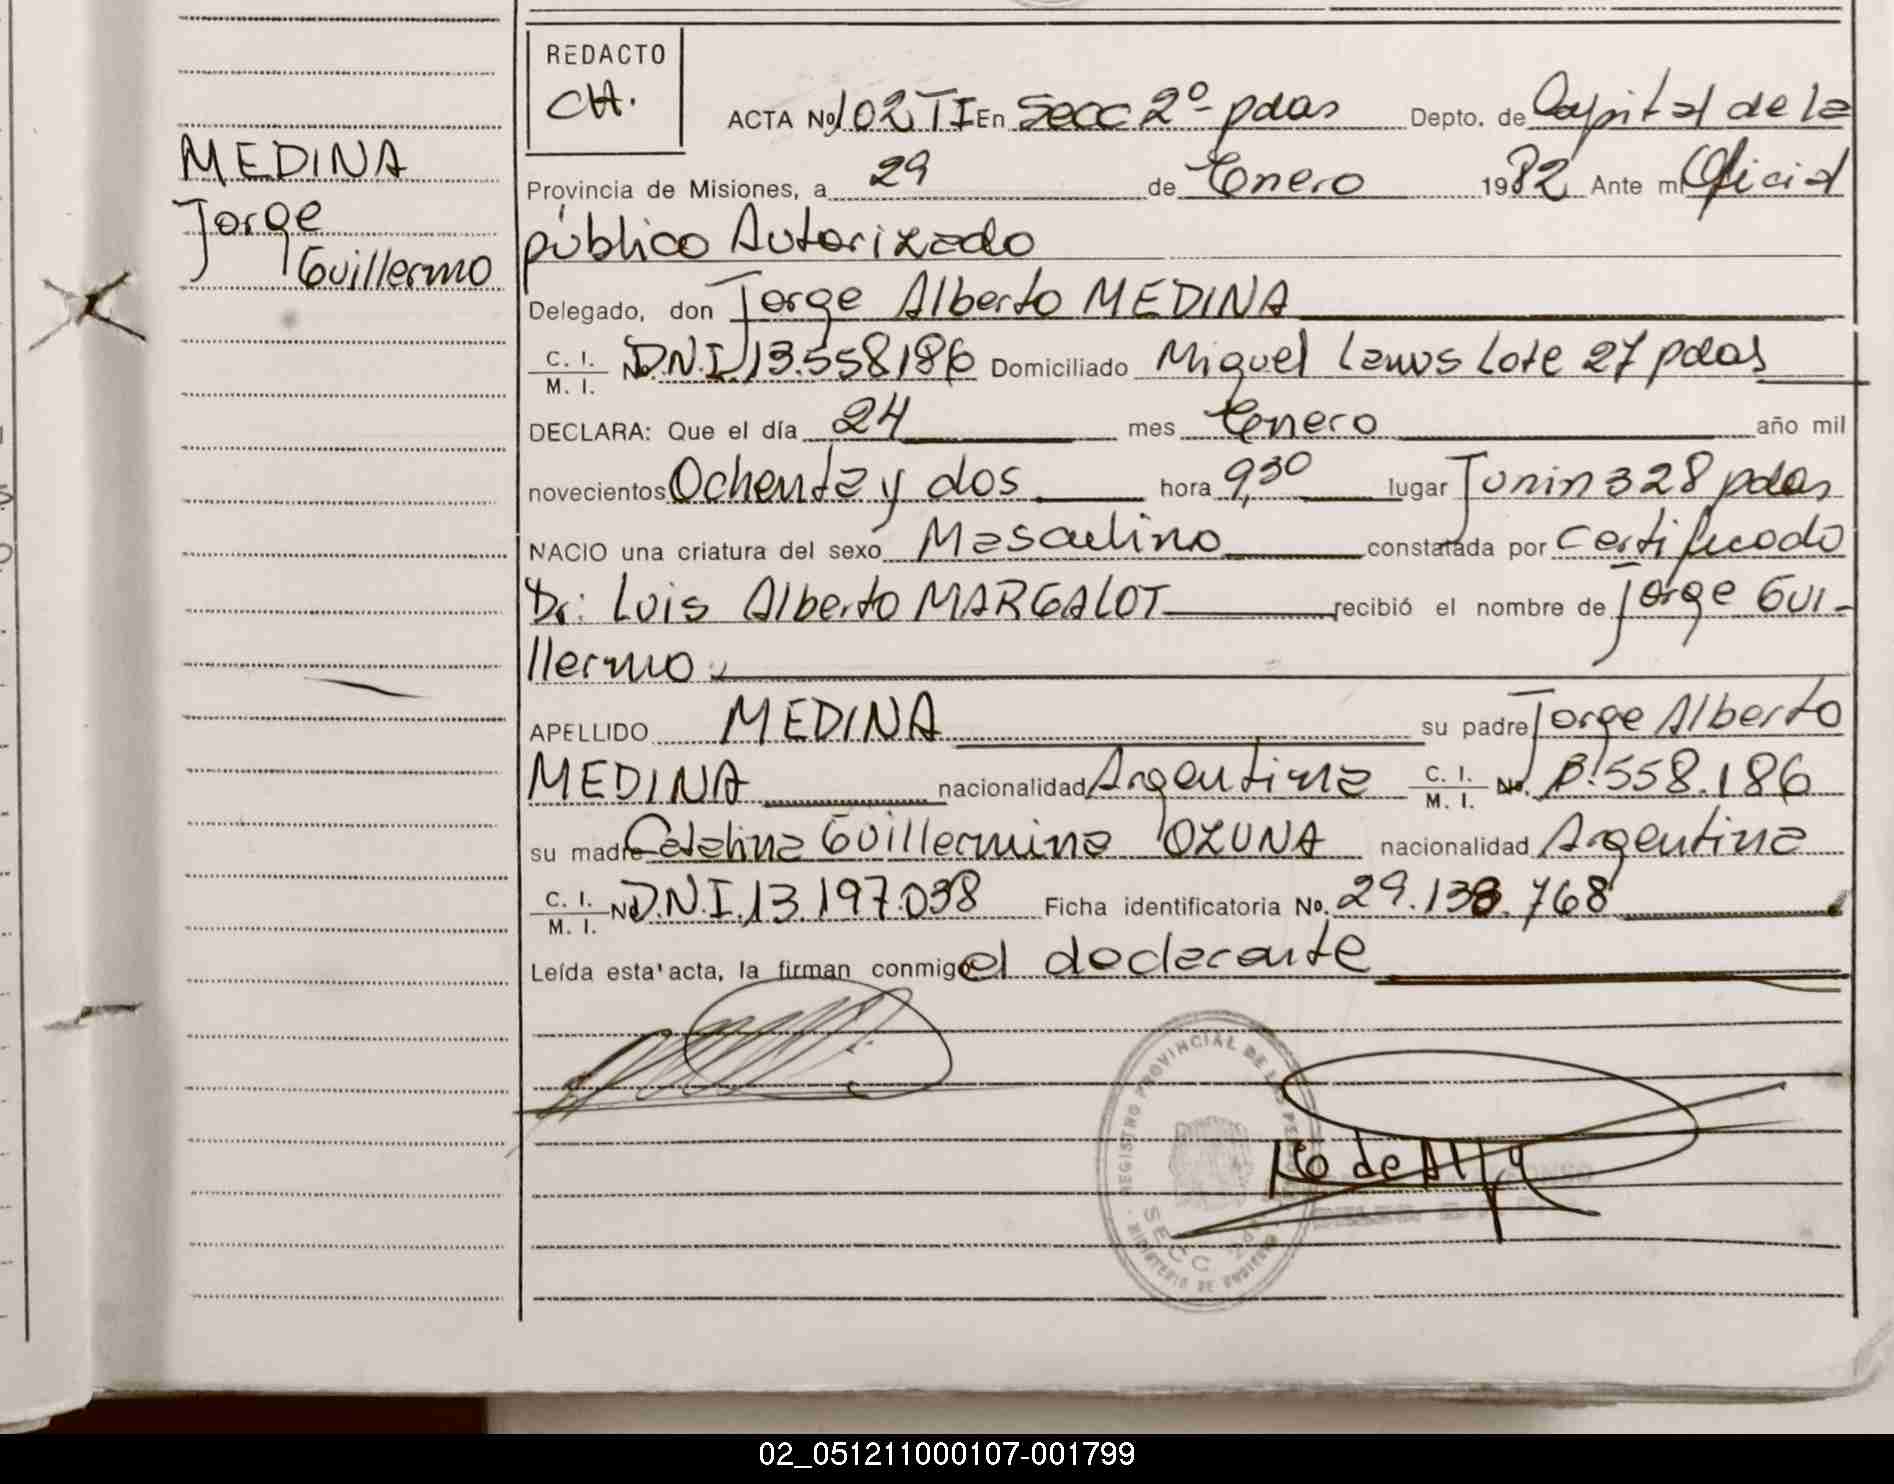 REDACTO
CH.
MEDINA
Jorge
Guillermo
ACTA No 102 TI En Secc 2º pdas Depto. de Capital de la
Provincia de Misiones, a 29 de Enero 1982 Ante mi Oficial
público Autorizado
Delegado, don Jorge Alberto MEDINA
C. I. M. I. No. D.N.I. 13.558186 Domiciliado Miguel Lanus Lote 27 pdas
DECLARA: Que el día 24 mes Enero año mil
novecientos Ochenta y dos hora 9,30 lugar Junin 328 pdas
NACIO una criatura del sexo Masculino constatada por Certificado
Dr: Luis Alberto MARGALOT recibió el nombre de Jorge Gui-
llermo
APELLIDO MEDINA su padre Jorge Alberto
MEDINA nacionalidad Argentina C. I. M. I. No. 13.558.186
su madre Catalina Guillermina OZUNA nacionalidad Argentina
C. I. M. I. No D.N.I. 13.197.038 Ficha identificatoria No. 29.138.768
Leída esta acta, la firman conmigo el declarante
REGISTRO PROVINCIAL DE LAS PERSONAS
SECC 2da
MINISTERIO DE GOBIERNO
02_051211000107-001799